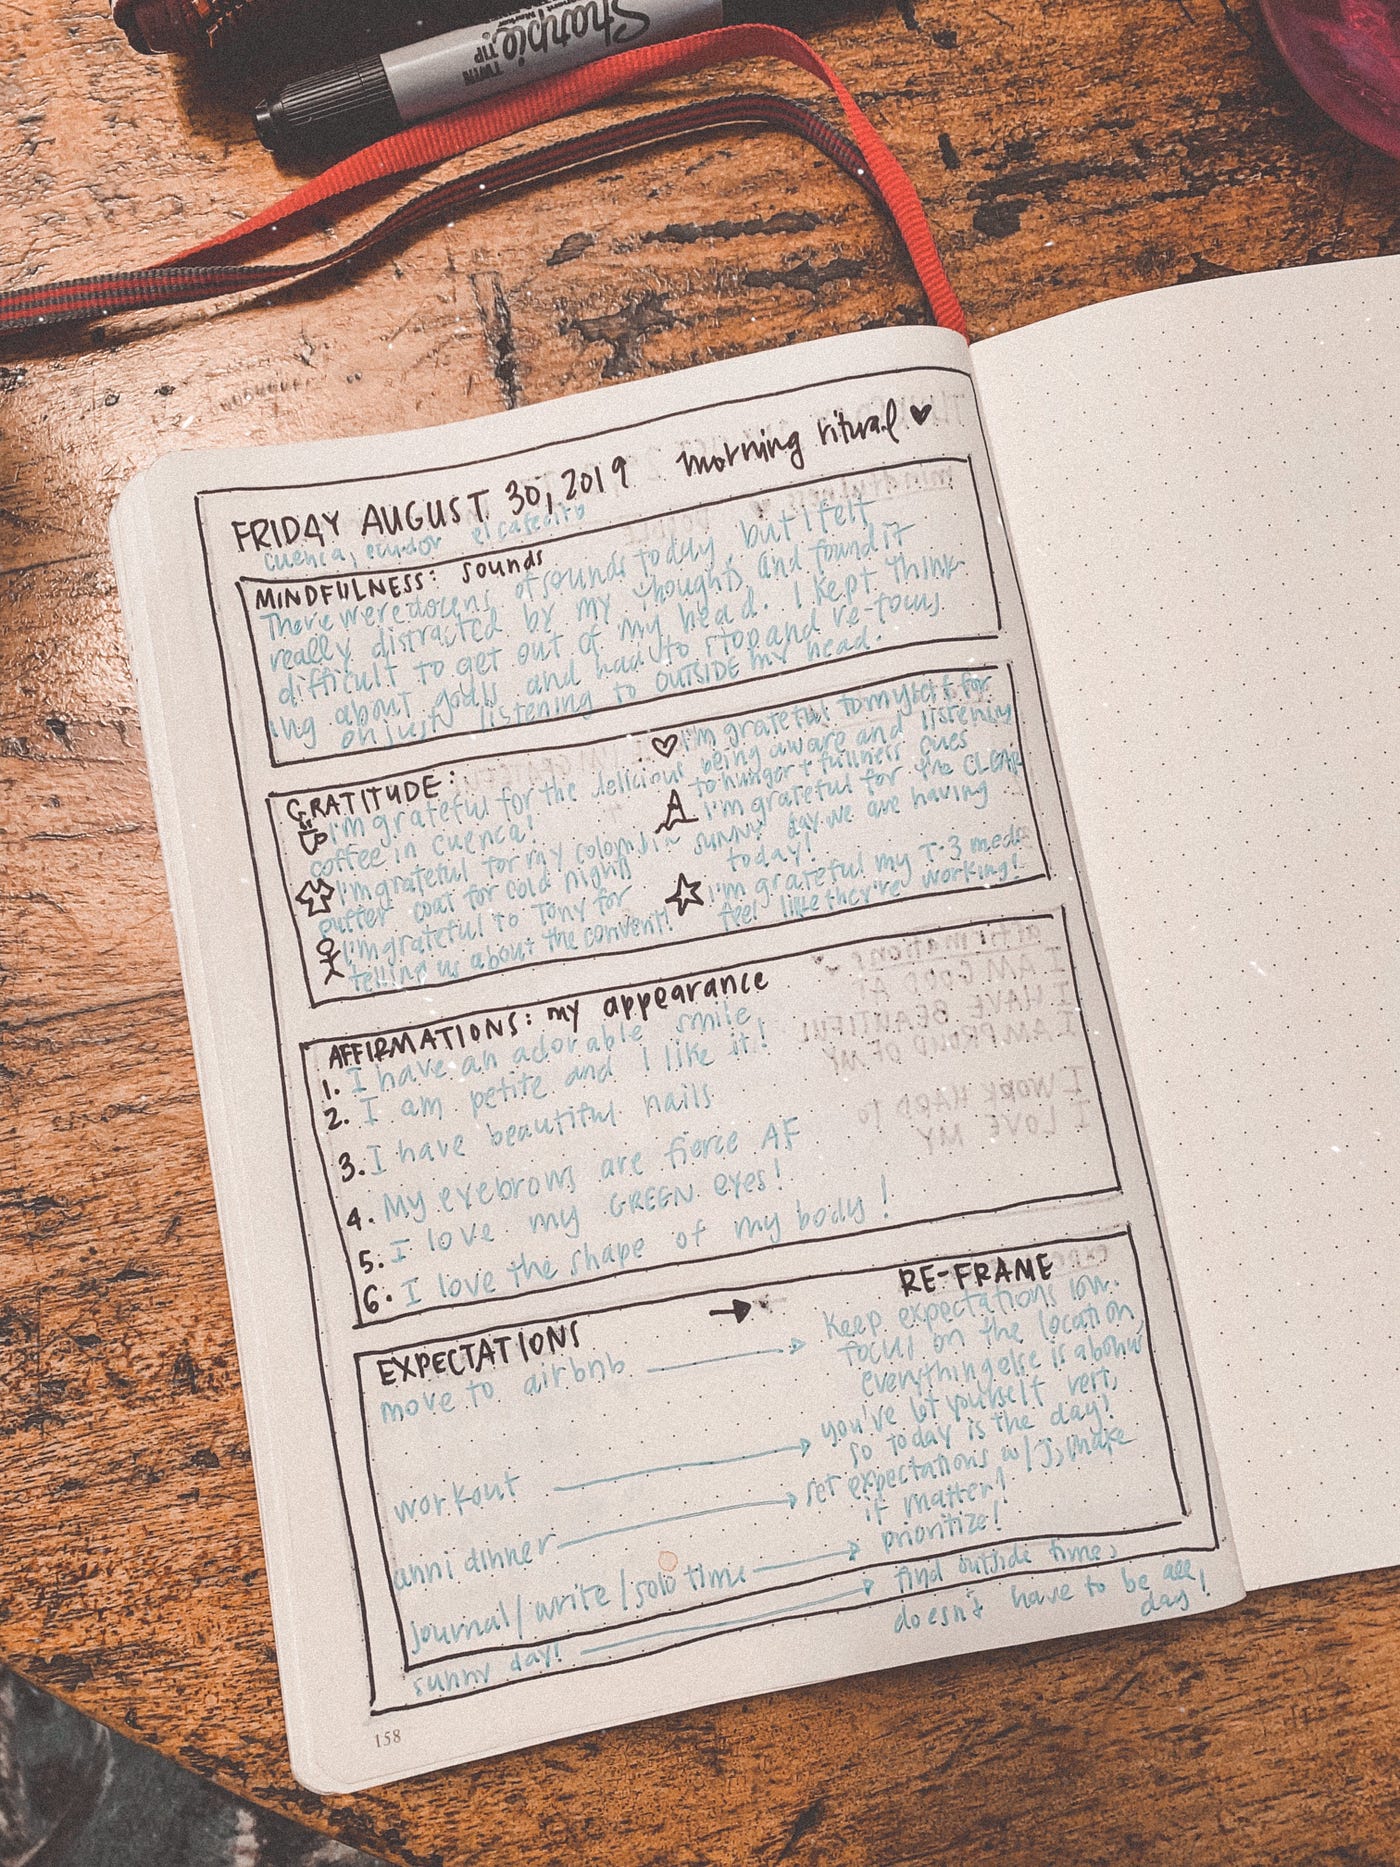 Sharpie
TWIN
TIP
FRIDAY AUGUST 30, 2019 morning ritual
cuenca, ecuador el cafecito
MINDFULNESS: sounds
There were dozens of sounds today, but I felt
really distracted by my thoughts and found it
difficult to get out of my head. I kept think-
ing about goals and had to stop and re-focus
on just listening to OUTSIDE my head.
GRATITUDE:
I'm grateful for the delicious
coffee in cuenca!
I'm grateful for my colombia
puffer coat for cold nights
I'm grateful to Tony for
telling us about the convent!
I'm grateful to myself for
being aware and listening
to hunger + fullness cues
I'm grateful for the CLEAR
sunny day we are having
today!
I'm grateful my T-3 meds
feel like they're working!
AFFIRMATIONS: my appearance
1. I have an adorable smile
2. I am petite and I like it!
3. I have beautiful nails
4. My eyebrows are fierce AF
5. I love my GREEN eyes!
6. I love the shape of my body!
EXPECTATIONS → RE-FRAME
move to airbnb
Keep expectations low.
focus on the location,
everything else is a bonus
workout
you've let yourself rest,
so today is the day!
anni dinner
set expectations w/ J, make
it matter!
journal/write/solo time
prioritize!
sunny day!
find outside time,
doesn't have to be all
day!
158